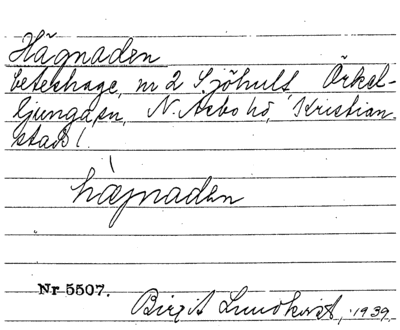 Hägnaden
beteshage, nr 2 Sjöhult Örkel-
ljunga sn, N. Åsbo hd, Kristian-
stads l.
hägnaden
Nr 5507.
Birgit Lundkvist, 1939